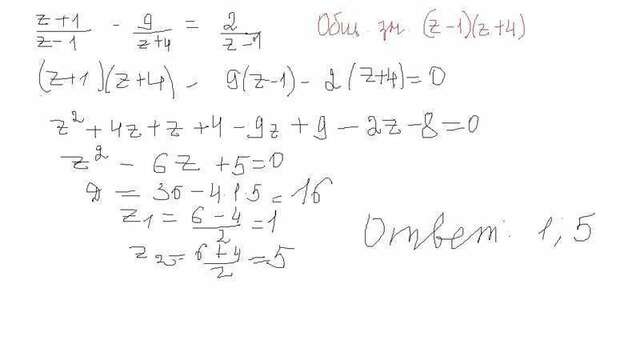 \frac{z+1}{z-1} - \frac{9}{z+4} = \frac{2}{z-1} Общ зн (z-1)(z+4)
(z+1)(z+4) - 9(z-1) - 2(z+4)=0
z^2+4z+z+4-9z+9-2z-8=0
z^2-6z+5=0
D=36-4·5=16
z_1=\frac{6-4}{2}=1
z_2=\frac{6+4}{2}=5
Ответ: 1; 5